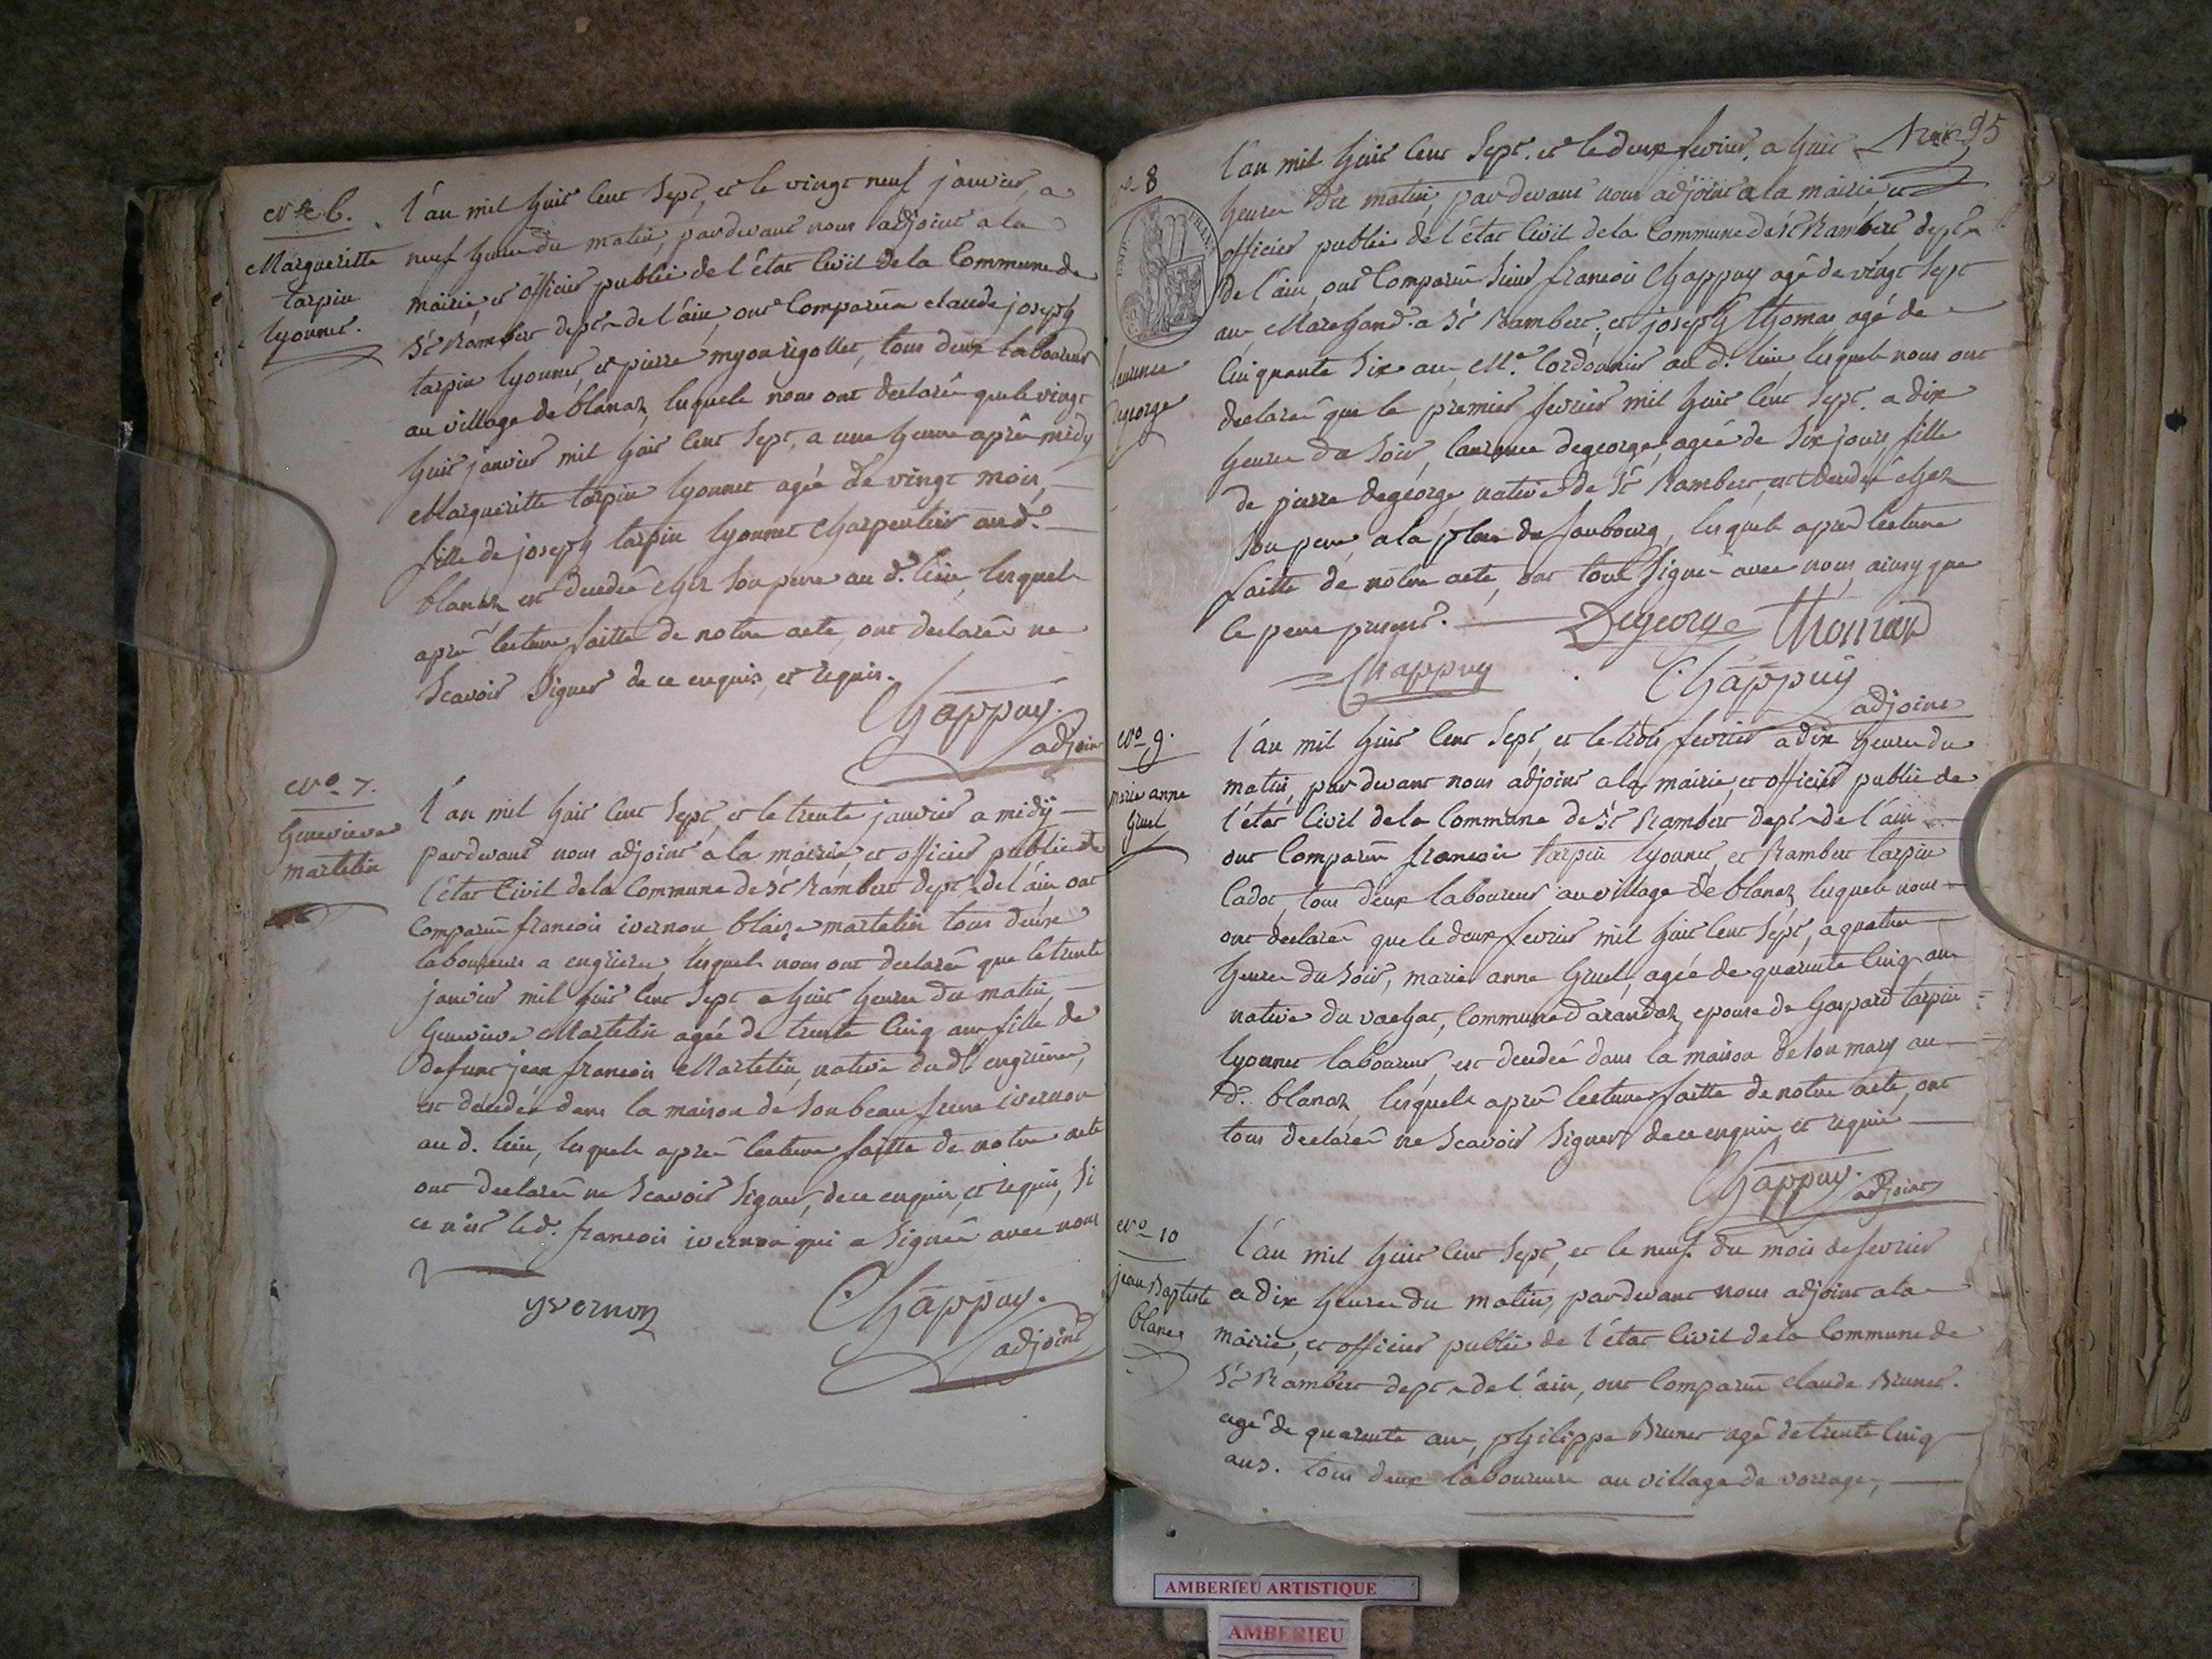 No 6.
Margueritte
tarpin
lyonnet.
l'an mil huit cent sept, et le vingt neuf janvier, a
neuf heure du matin, pardevant nous adjoint a la
mairie, et officier public de l'état civil de la Commune de
St Rambert dept de l'ain, ont comparûs claude joseph
tarpin lyonnet, et pierre myon rigollet, tous deux laboureurs
au village de blanaz, lesquels nous ont declarés que le vingt
huit janvier mil huit cent sept, a une heure après midy
Margueritte tarpin lyonnet agée de vingt mois,
fille de joseph tarpin lyonnet Charpentier aud.
blanaz est decedée chez son pere au d. lieu, lesquels
après lecture faitte de notre acte, ont declarés ne
Scavoir Signer de ce enquis, et requis.
Chappuy.
adjoint
No 7.
Genevieve
martelin
l'an mil huit cent Sept, et le trente janvier a midÿ
pardevant nous adjoint a la mairie, et officier public de
l'état Civil de la Commune de St Rambert dept de l'ain, ont
comparûs francois ivernon blaize martelin tous deux
laboureurs a engrieru, lesquels nous ont declarés que le trente
janvier mil huit cent Sept a huit heures du matin
Genevieve Martelin agée de trente cinq ans fille de
defunt jean francois Martelin, native dud. engrieru,
est décedée dans la maison de Son beau frere ivernon
au d. lieu, lesquels après lecture faitte de notre acte
ont declarés ne Scavoir Signer, de ce enquis, et requis, Si
ce n'est led. francois ivernon qui a Signé avec nous
yvernon
Chappuy.
adjoint
95
No 8
EMP. FRAN.
laurence
degeorge
l'an mil huit cent Sept. et le deux fevrier, a huit
heures du matin, pardevant nous adjoint a la mairie, et
officier public de l'état Civil de la Commune de St Rambert dept
de l'ain, ont Comparûs Sieur francois Chappuy agé de vingt Sept
ans Marchand a St Rambert, et joseph thomas agé de
Cinquante Six ans Md. Cordonnier au d. lieu, lesquels nous ont
declarés que le premier fevrier mil huit cent Sept. a dix
heures du Soir, laurence degeorge, agée de Six jours, fille
de pierre degeorge, native de St Rambert est decedée chez
Son pere, a la place du faubourg, lesquels apres lecture
faitte de notre acte, ont tous Signé avec nous, ainsy que
le pere present.
Degeorge thomas
Chappuy
Chappuy
adjoint
No 9.
marie anne
Gruel
l'an mil huit cent Sept, et le trois fevrier a dix heures du
matin, pardevant nous adjoint a la mairie, et officier public de
l'état Civil de la Commune de St Rambert dept de l'ain
ont Comparûs francois tarpin lyonnet, et Rambert tarpin
Cadot, tous deux laboureurs au village de blanaz, lesquels nous
ont declarés que le deux fevrier mil huit cent Sept, a quatre
heures du Soir, marie anne Gruel, agée de quarante Cinq ans
native du vachat, Commune d'arandaz, epouse de Gaspard tarpin
lyonnet laboureur, est decedée dans la maison de Son mary au
d. blanaz, lesquels après lecture faitte de notre acte, ont
tous declarés ne Scavoir Signer de ce enquis et requis
Chappuy.
adjoint
No 10
jean Baptiste
blanc
l'an mil huit cent Sept, et le neuf du mois de fevrier
a dix heures du matin, pardevant nous adjoint a la
mairie, et officier public de l'état Civil de la Commune de
St Rambert dept de l'ain, ont Comparûs claude Brunet.
agé de quarante ans, philippe Brunet agé de trente Cinq
ans. tous deux laboureurs au village de vorrage,
AMBERIEU ARTISTIQUE
AMBERIEU